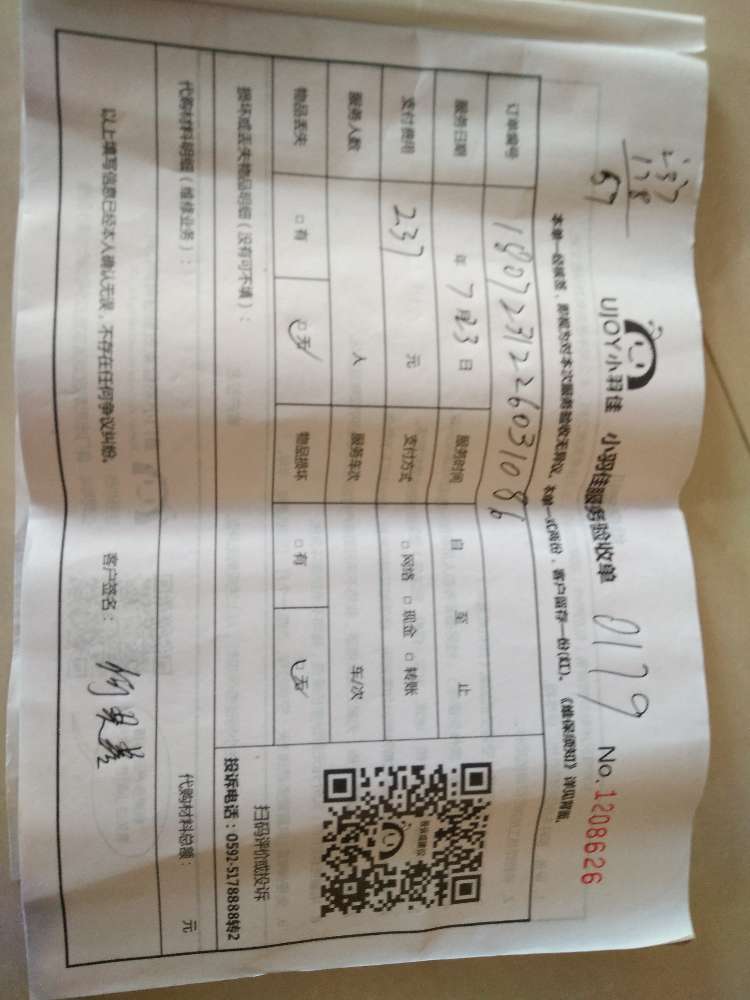 237
178
57
UJOY小羽佳 小羽佳服务验收单 0179 No.1208626
本单一经候签，即视为对本次服务验收无异议。本单一式两份，客户留存一份(红)。《维保须知》详见背面。
订单编号 1807231226031086
服务日期 年 7月23日 服务时间 自 至 止
支付费用 237 元 支付方式 □网络 □现金 □转账
服务人数 人 服务车次 车/次
物品丢失 □有 □无 物品损坏 □有 □无
我要提建议
扫码评价或投诉
投诉电话：0592-5178888转2
损坏或丢失物品明细（没有可不填）：
代购材料明细（维修业务）： 代购材料总额： 元
以上填写信息已经本人确认无误，不存在任何争议纠纷。 客户签名：